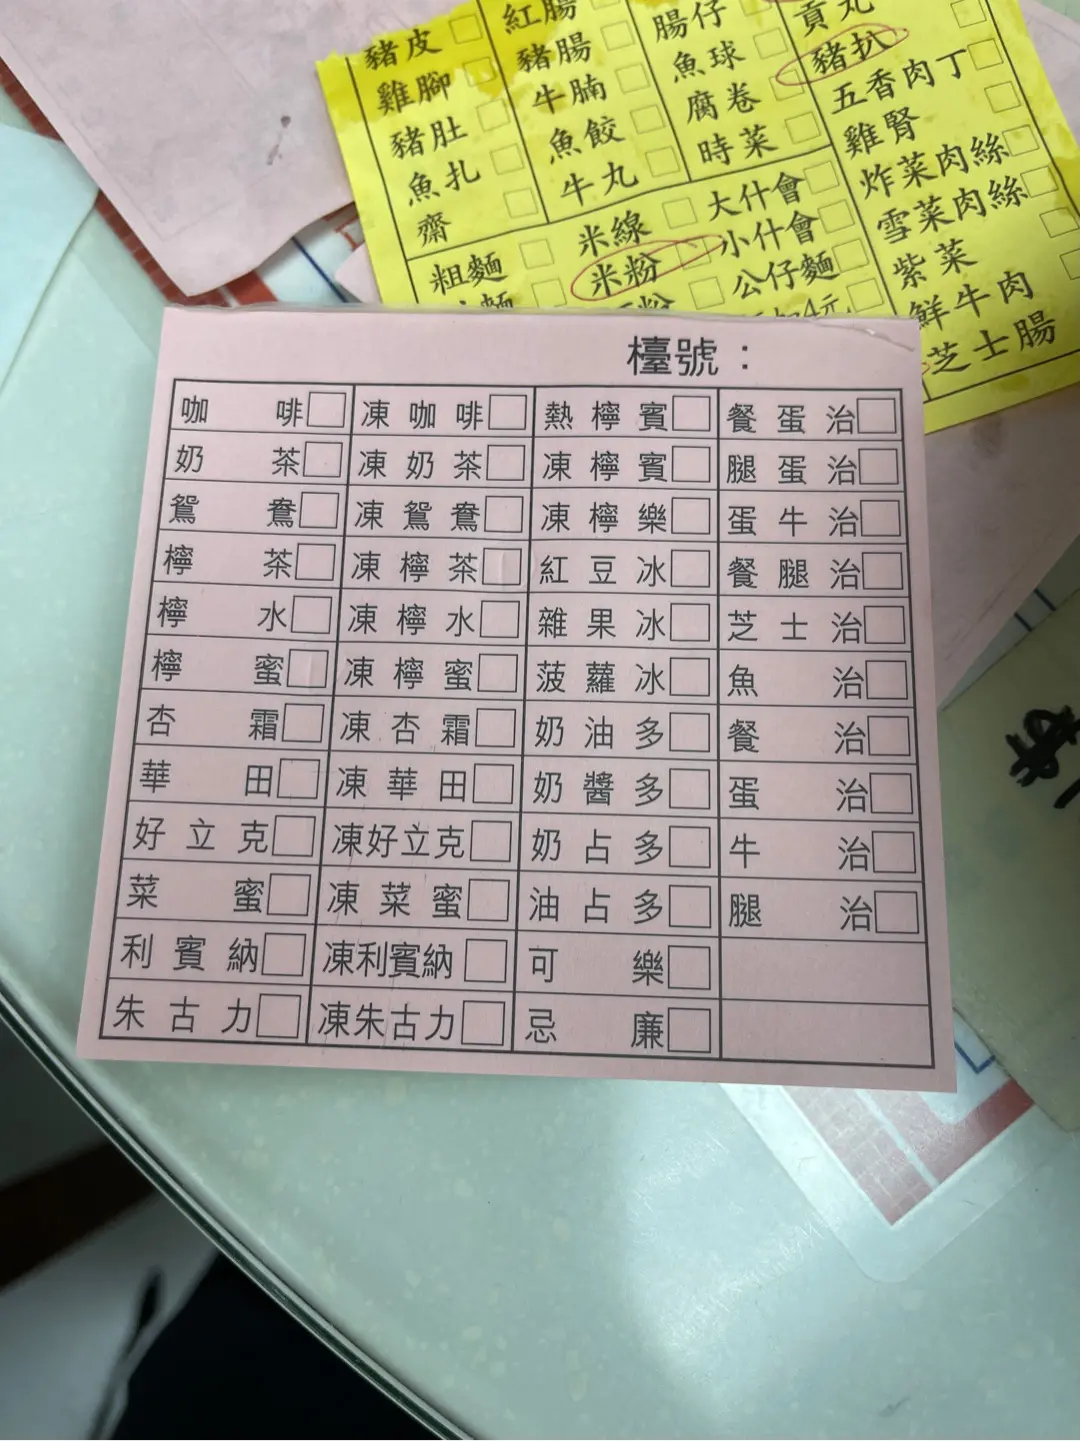 豬皮 紅腸 腸仔 貢丸
雞腳 豬腸 魚球 豬扒
豬肚 牛腩 腐卷 五香肉丁
魚扎 魚餃 時菜 雞腎
齋 牛丸 大什會 炸菜肉絲
粗麵 米線 小什會 雪菜肉絲
米粉 公仔麵 紫菜
4元 鮮牛肉
芝士腸
檯號：
咖啡 凍咖啡 熱檸賓 餐蛋治
奶茶 凍奶茶 凍檸賓 腿蛋治
鴛鴦 凍鴛鴦 凍檸樂 蛋牛治
檸茶 凍檸茶 紅豆冰 餐腿治
檸水 凍檸水 雜果冰 芝士治
檸蜜 凍檸蜜 菠蘿冰 魚治
杏霜 凍杏霜 奶油多 餐治
華田 凍華田 奶醬多 蛋治
好立克 凍好立克 奶占多 牛治
菜蜜 凍菜蜜 油占多 腿治
利賓納 凍利賓納 可樂
朱古力 凍朱古力 忌廉